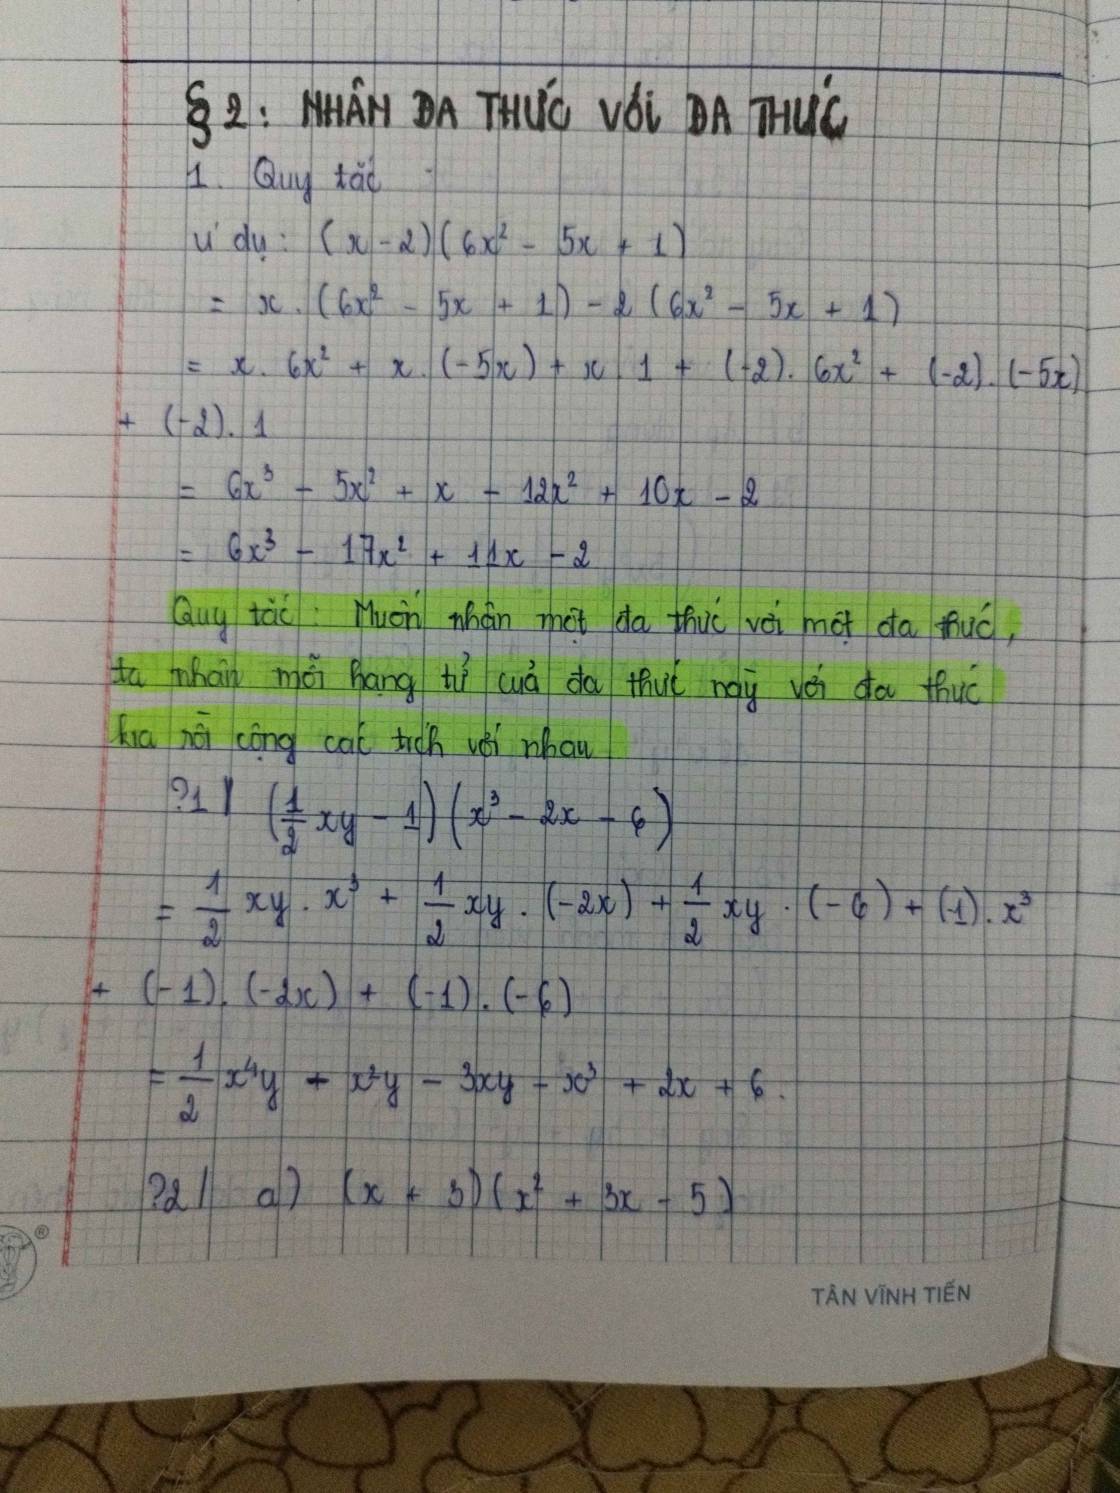 § 2: NHÂN ĐA THỨC VỚI ĐA THỨC
1. Quy tắc
Ví dụ: (x - 2)(6x² - 5x + 1)
= x. (6x² - 5x + 1) - 2 (6x² - 5x + 1)
= x. 6x² + x. (-5x) + x. 1 + (-2). 6x² + (-2). (-5x)
+ (-2). 1
= 6x³ - 5x² + x - 12x² + 10x - 2
= 6x³ - 17x² + 11x - 2
Quy tắc: Muốn nhân một đa thức với một đa thức,
ta nhân mỗi hạng tử của đa thức này với đa thức
kia rồi cộng các tích với nhau
?1| (1/2 xy - 1)(x³ - 2x - 6)
= 1/2 xy . x³ + 1/2 xy . (-2x) + 1/2 xy . (-6) + (-1). x³
+ (-1). (-2x) + (-1). (-6)
= 1/2 x⁴y - x²y - 3xy - x³ + 2x + 6.
?2| a) (x + 3)(x² + 3x - 5)
®
TÂN VĨNH TIẾN